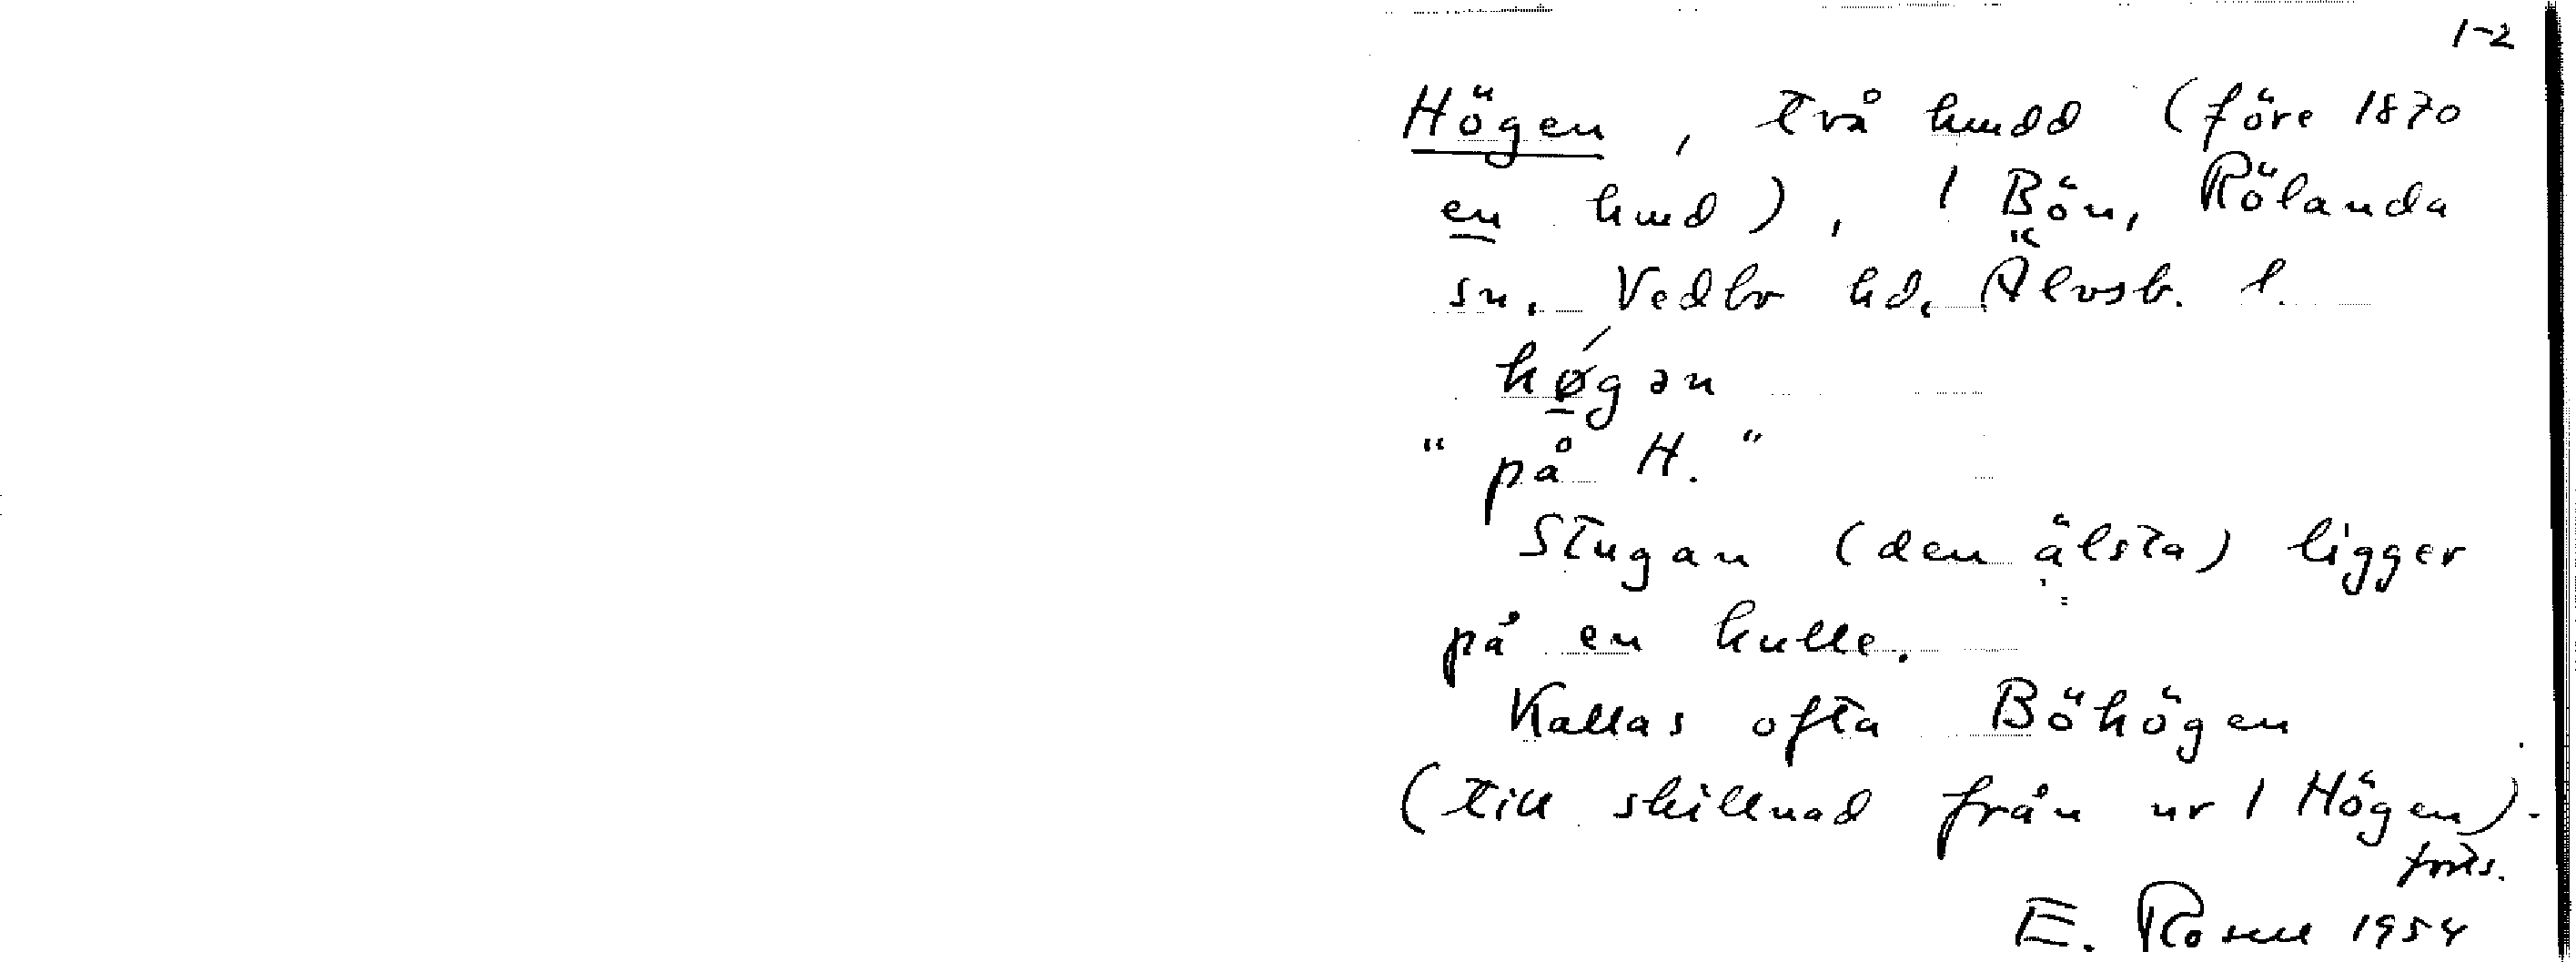 1-2
Högen, två hmdd (före 1870
en hmd), 1 Bön, Rölanda
sn. Vedbo hd. Älvsb. l.
hǿ̱gən
"på H."
Stugan (den älsta) ligger
på en kulle.
Kallas ofta Böhögen
(till skillnad från nr 1 Högen).
forts.
E. Rosell 1954